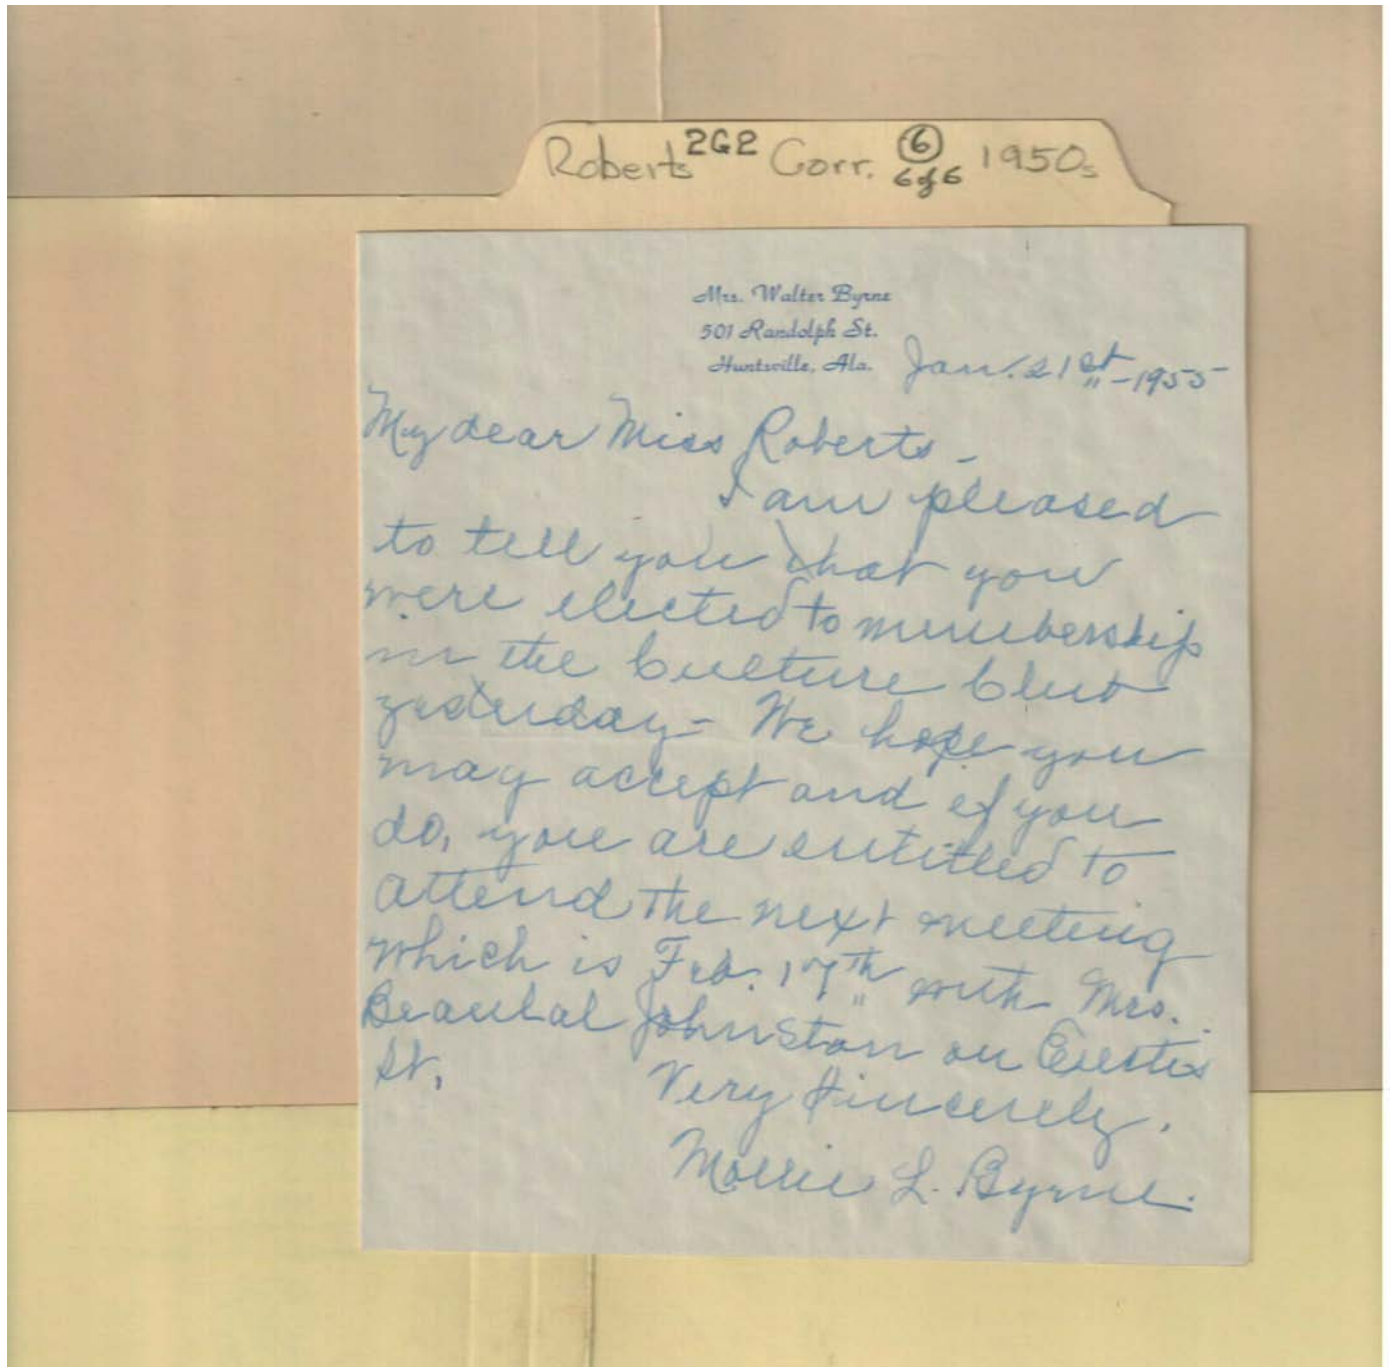 Roberts 2G2 Corr. 6 1950s
6 of 6
Mrs. Walter Byrne
501 Randolph St.
Huntsville, Ala.
Jan. 21st - 1955
My dear Miss Roberts -
I am pleased
to tell you that you
were elected to membership
in the Culture Club
yesterday - We hope you
may accept and if you
do, you are entitled to
attend the next meeting
which is Feb. 17th with Mrs.
Johnston on Eustis
St.
Very Sincerely,
Mollie L. Byrne.